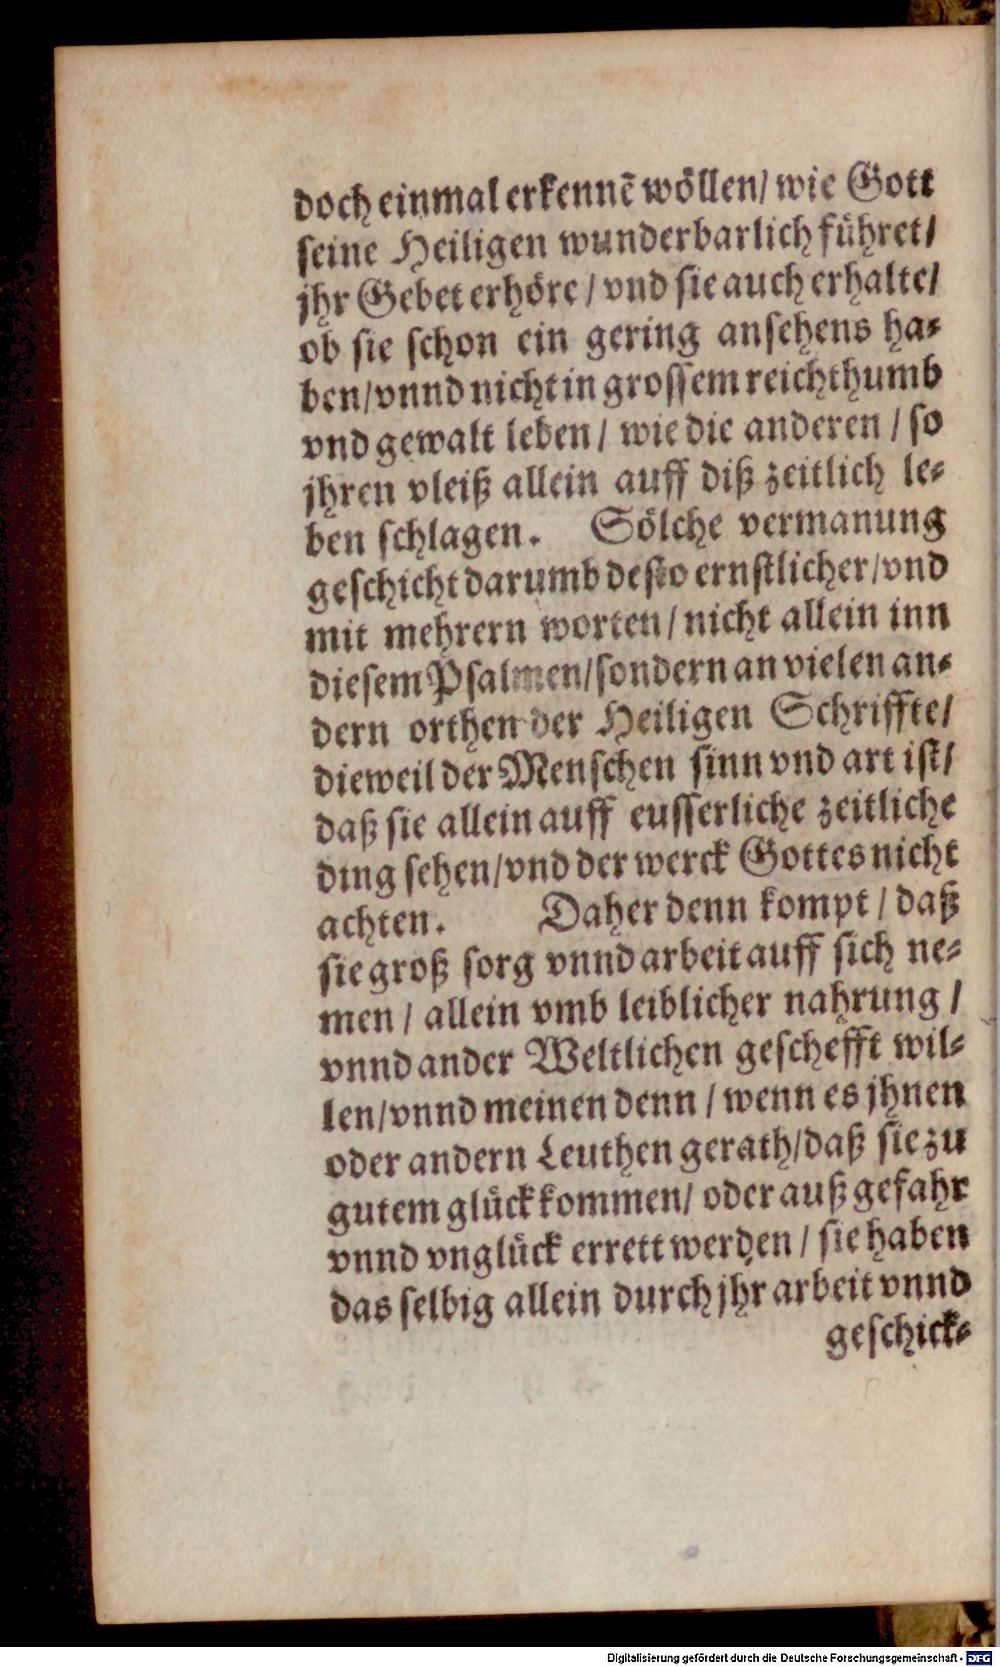 doch einmal erkennẽ wöllen/ wie Gott
seine Heiligen wunderbarlich führet/
jhr Gebet erhöre / vnd sie auch erhalte/
ob sie schon ein gering ansehens ha-
ben/vnnd nicht in grossem reichthumb
vnd gewalt leben/ wie die anderen / so
jhren vleiß allein auff diß zeitlich le-
ben schlagen. Sölche vermanung
geschicht darumb desto ernstlicher/vnd
mit mehrern worten/ nicht allein inn
diesem Psalmen/sondern an vielen an-
dern orthen der Heiligen Schriffte/
dieweil der Menschen sinn vnd art ist/
daß sie allein auff eusserliche zeitliche
ding sehen/vnd der werck Gottes nicht
achten. Daher denn kompt / daß
sie groß sorg vnnd arbeit auff sich ne-
men / allein vmb leiblicher nahrung /
vnnd ander Weltlichen geschefft wil-
len/vnnd meinen denn / wenn es jhnen
oder andern Leuthen gerath/daß sie zu
gutem glück kommen/ oder auß gefahr
vnnd vnglück errett werden / sie haben
das selbig allein durch jhr arbeit vnnd
geschick-
Digitalisierung gefördert durch die Deutsche Forschungsgemeinschaft - DFG